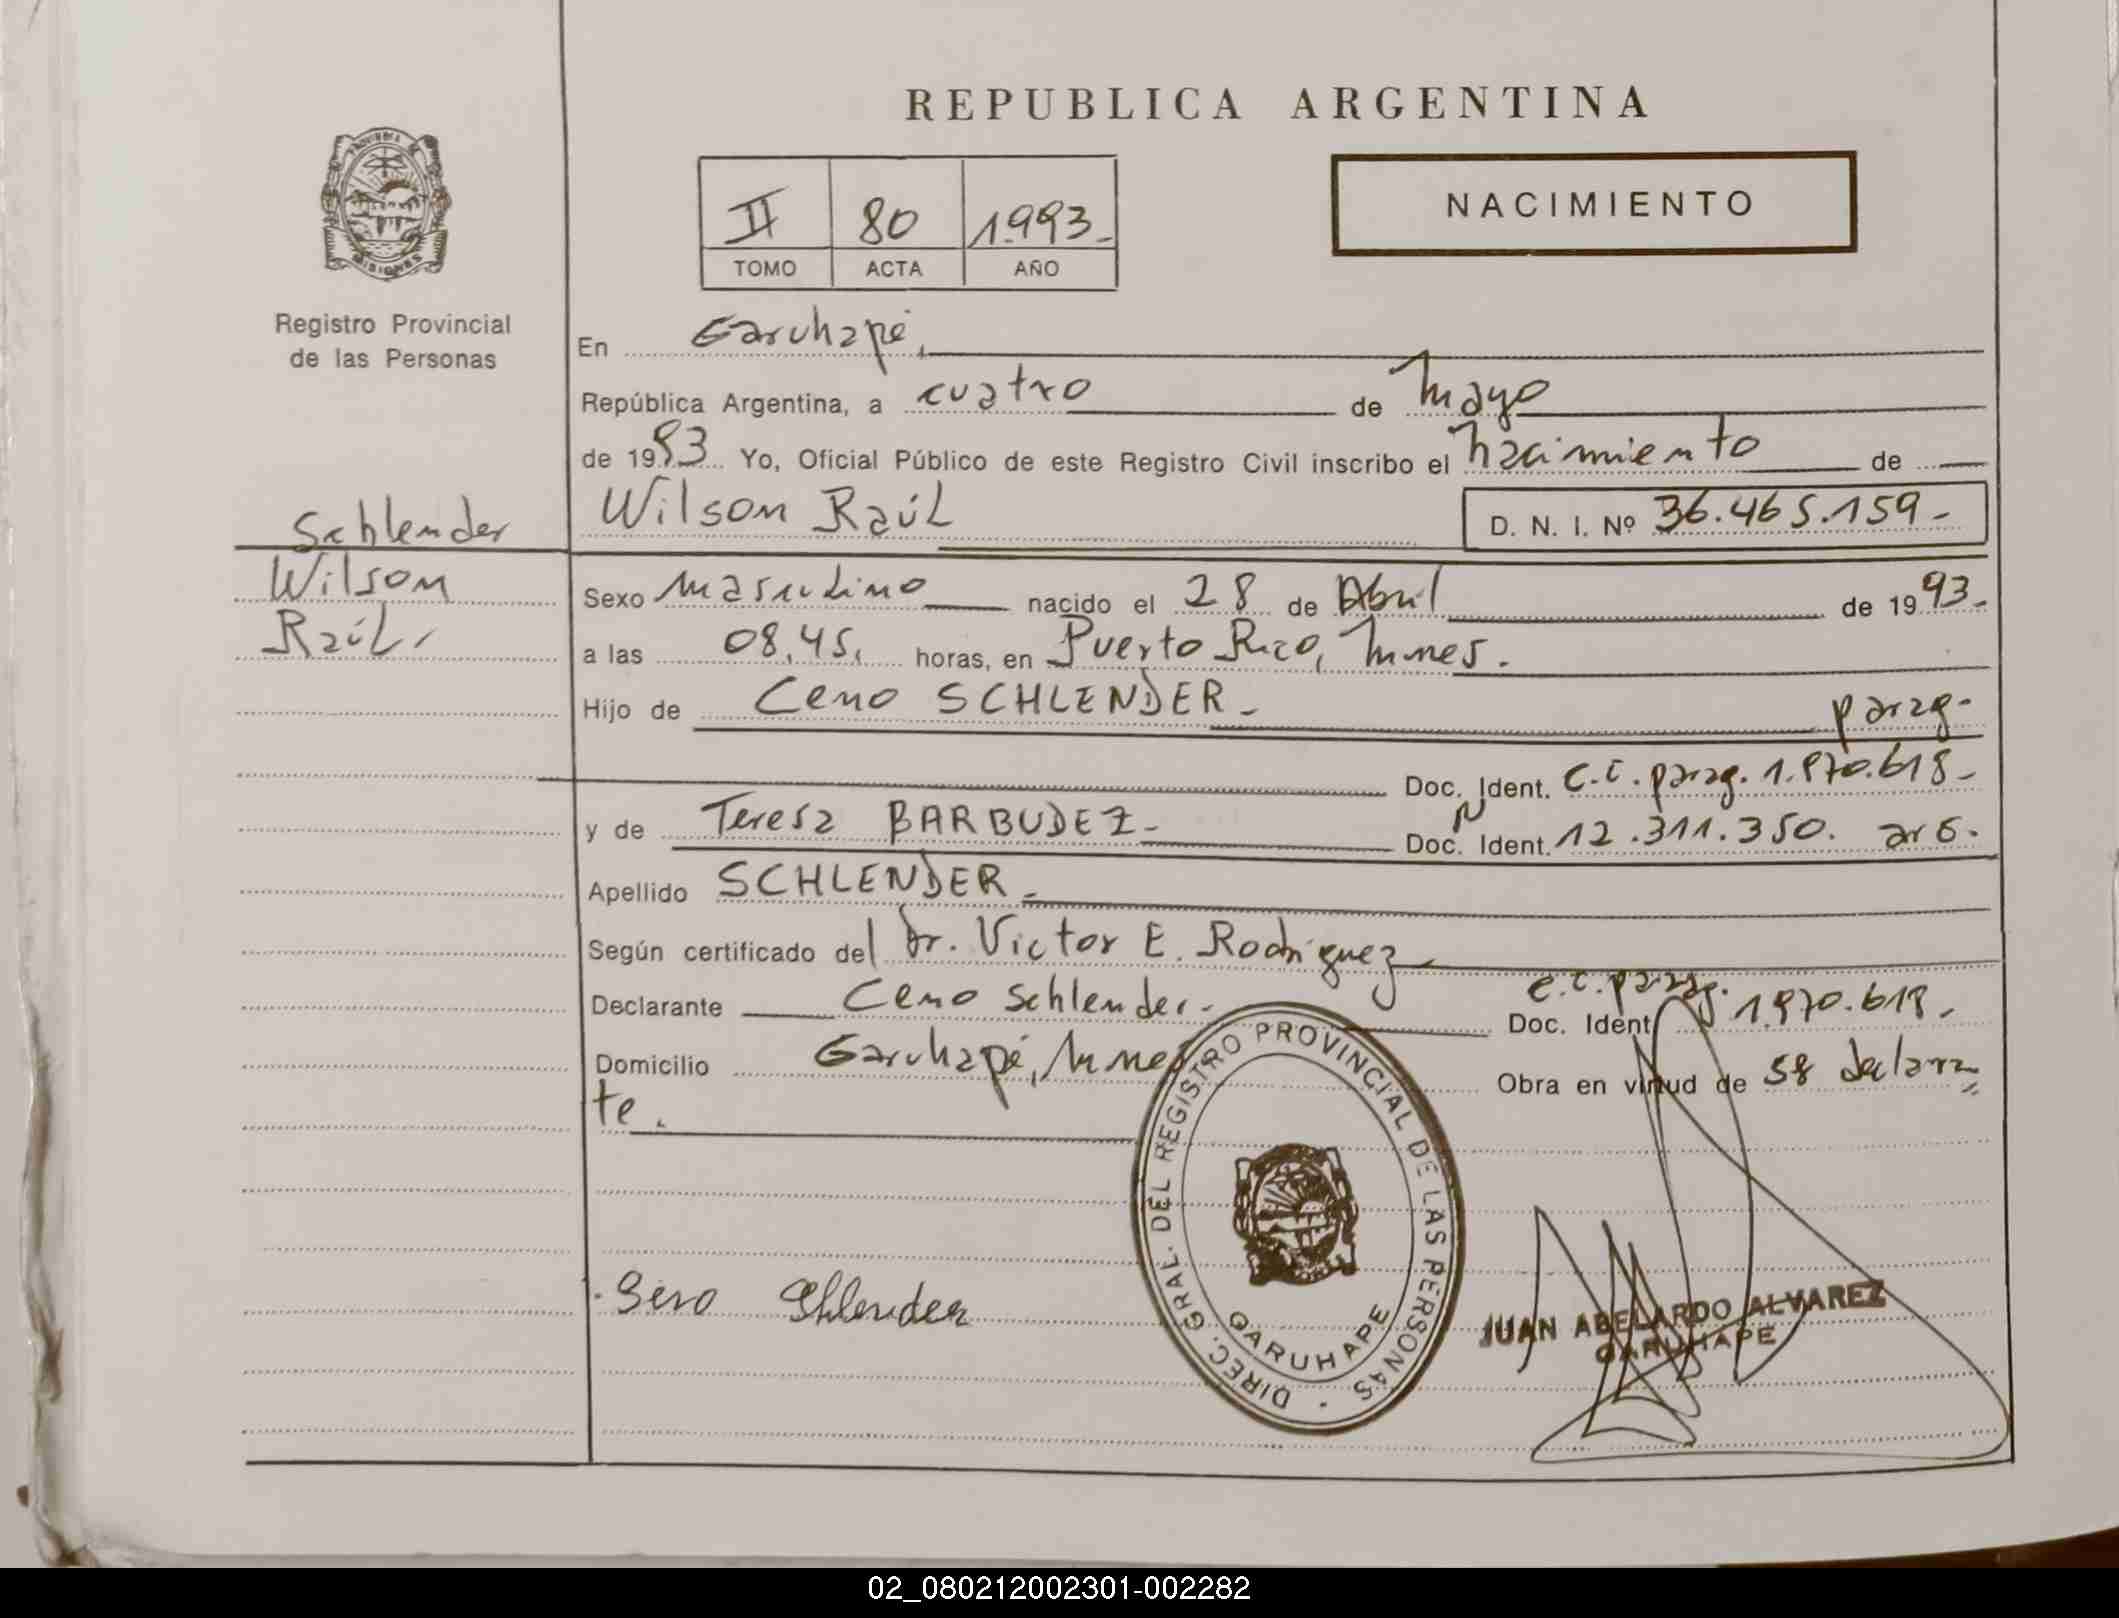 REPUBLICA ARGENTINA
PROVINCIA DE MISIONES
Registro Provincial
de las Personas
II 80 1993.
TOMO ACTA AÑO
NACIMIENTO
En Garuhapé,
República Argentina, a cuatro de Mayo
de 1993 Yo, Oficial Público de este Registro Civil inscribo el nacimiento de
Wilson Raúl D. N. I. Nº 36.465.159-
Schlender
Wilson
Raúl,
Sexo masculino nacido el 28 de Abril de 1993.
a las 08,45, horas, en Puerto Rico, Mnes.
Hijo de Ceno SCHLENDER- parag.
Doc. Ident. C.I. parag. 1.970.618-
y de Teresa BARBUDEZ- Doc. Ident. 12.311.350. arg.
Apellido SCHLENDER-
Según certificado del Dr. Victor E. Rodriguez
Declarante Ceno Schlender- Doc. Ident. C.I. parag. 1.970.618-
Domicilio Garuhapé, Mnes Obra en virtud de ser declaran
te.
DIREC. GRAL. DEL REGISTRO PROVINCIAL DE LAS PERSONAS
GARUHAPE
Seno Schlender
JUAN ABELARDO ALVAREZ
GARUHAPE
02_080212002301-002282